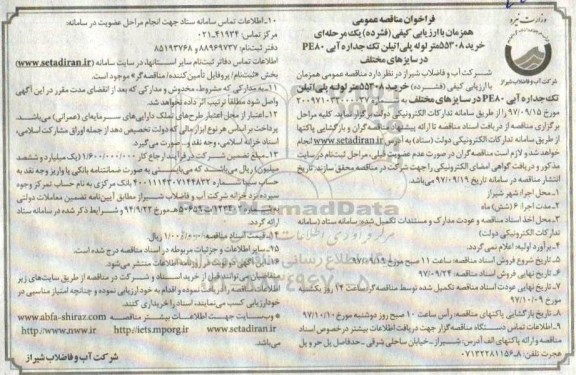 وزارت نیرو
شرکت آب و فاضلاب شیراز
فراخوان مناقصه عمومی
همزمان با ارزیابی کیفی (فشرده) یک مرحله‌ای
خرید ۵۵۳۰۸متر لوله پلی اتیلن تک جداره آبی PE۸۰
در سایزهای مختلف
شرکت آب و فاضلاب شیراز در نظر دارد مناقصه عمومی همزمان
با ارزیابی کیفی (فشرده) خرید ۵۵۳۰۸متر لوله پلی اتیلن
تک جداره آبی PE۸۰ در سایزهای مختلف به
۹۷/۰۹/۱۵ را از طریق سامانه تدارکات الکترونیکی دولت برگزار نماید. کلیه مراحل
برگزاری مناقصه از دریافت اسناد مناقصه تا ارائه پیشنهاد مناقصه گران و بازگشایی پاکتها
از طریق سامانه تدارکات الکترونیکی دولت (ستاد) به آدرس www.setadiran.ir انجام
خواهد شد و لازم است مناقصه گران در صورت عدم عضویت قبلی، مراحل ثبت نام در سایت
مذکور و دریافت گواهی امضای الکترونیکی را جهت شرکت در مناقصه محقق سازند. تاریخ
انتشار مناقصه در سامانه تاریخ ۹۷/۰۹/۱۹ می‌باشد.
۱-محل اجرا: شهر شیراز
۲-مدت اجرا: ۶ (شش) ماه
۳-محل اخذ اسناد مناقصه و عودت مدارک و مستندات تکمیل شده: سامانه ستاد (سامانه
تدارکات الکترونیکی دولت)
۴-برآورد اولیه: اعلام نمی گردد.
۵-تاریخ شروع فروش اسناد مناقصه: ساعت ۱۱ صبح مورخ ۹۷/۰۹/۱۹
۶-تاریخ نهایی فروش اسناد مناقصه: ۹۷/۰۹/۲۴
۷-تاریخ نهایی عودت اسناد مناقصه تکمیل شده توسط مناقصه گر: ساعت ۱۴ روز یکشنبه
۹۷/۱۰/۰۹ مورخ
۸-تاریخ بازگشایی پاکتهای مناقصه: رأس ساعت ۱۰ صبح روز دوشنبه مورخ ۹۷/۱۰/۱۰
۹-اطلاعات تماس دستگاه مناقصه گزار جهت دریافت اطلاعات بیشتر در خصوص اسناد
مناقصه و ارائه پاکتهای الف: آدرس: شیراز-خیابان ساحلی شرقی-حدفاصل پل حر و پل
هجرت تلفن: ۸-۰۷۱۳۲۲۸۱۱۵۶
۱۰-اطلاعات تماس سامانه ستاد جهت انجام مراحل عضویت در سامانه:
مرکز تماس: ۴۱۹۳۴-۰۲۱
دفتر ثبت نام: ۸۸۹۶۹۷۳۷ و ۸۵۱۹۳۷۶۸
اطلاعات تماس دفاتر ثبت نام سایر استانها، در سایت سامانه (www.setadiran.ir)
بخش «ثبت نام/ پروفایل تأمین کننده/ مناقصه گر» موجود است.
۱۱-به مدارکی که مشروط، مخدوش و مدارکی که بعد از انقضای مدت مقرر در این آگهی
واصل شود مطلقا ترتیب اثر داده نخواهد شد.
۱۲-اعتبار از محل اعتبار طرح‌های تملک دارایی‌های سرمایه‌ای (عمرانی) می‌باشد.
پرداخت بر اساس هر نوع ابزار مالی که دولت تخصیص دهد از جمله اوراق مشارکت اسلامی،
اسناد خزانه اسلامی، وجه نقد و... صورت می‌گیرد.
۱۳-مبلغ تضمین شرکت در فرآیند ارجاع کار ۱/۶۰۰/۰۰۰/۰۰۰ (یک میلیارد و ششصد
میلیون) ریال می‌باشد که می‌بایستی به صورت ضمانتنامه بانکی یا واریز وجه نقد به
حساب سیبا شماره ۴۰۰۱۱۱۴۳۰۷۱۴۴۸۳۲ بانک مرکزی به نام حساب تمرکز وجوه
سپرده نزد خزانه شرکت آب و فاضلاب شیراز مطابق آیین نامه تضمین معاملات دولتی
ارائه گردد.
۱۴-قیمت اسناد مناقصه: ۱/۰۰۰/۰۰۰ ریال
۱۵-سایر اطلاعات و جزئیات مربوطه در اسناد مناقصه درج شده است.
خودارزیابی کسب می‌نمایند، اسناد را خریداری کنند.
وب سایت جهت اطلاعات بیشتر مناقصه www.abfa-shiraz.com
http://www.nww.ir http://iets.mporg.ir www.setadiran.ir
می‌باشد.
شرکت آب و فاضلاب شیراز